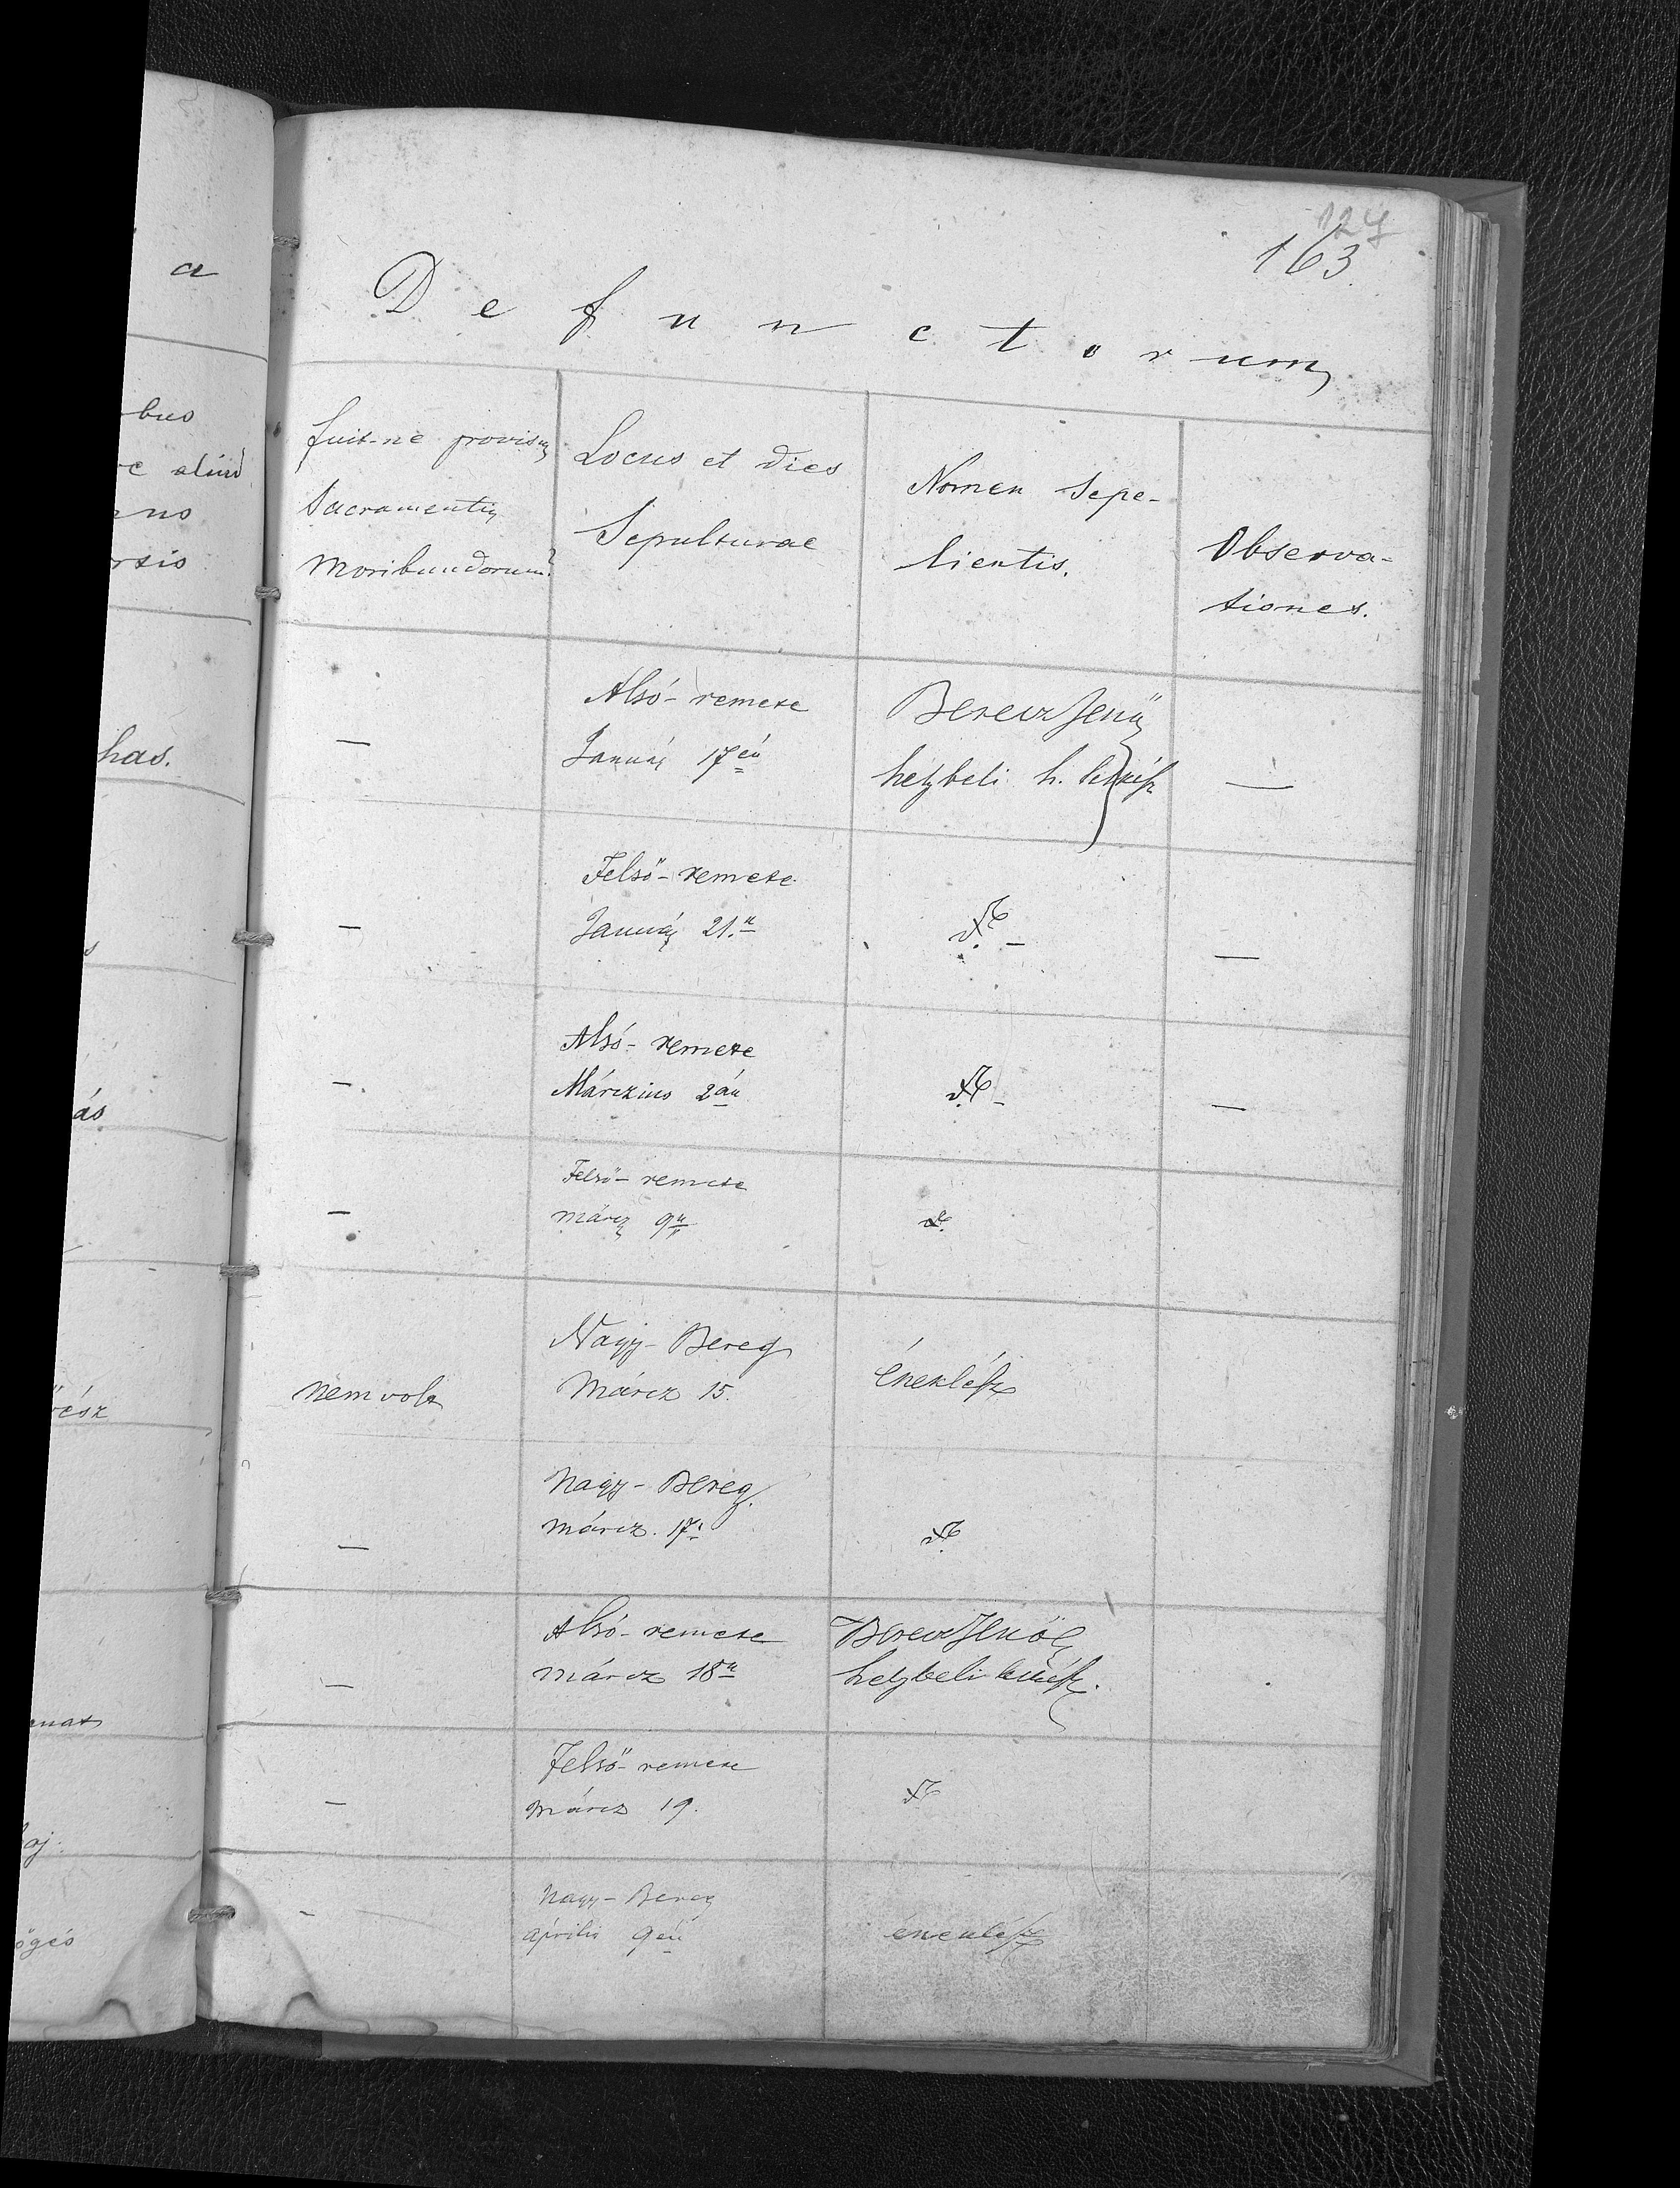 127
163.
a
Defunctorum
fuit-ne provisus
Sacramentis
Moribundorum?
Locus et dies
Sepulturae
Nomen Sepe-
lientis.
Observa-
tiones.
—
Alsó-remete
Január 17én
Berecz Jenő
helybeli h. lelkész
—
—
Felső-remete
Január 21.n
—
—
Alsó-remete
Márczius 2án
—
—
Felső-remete
márcz 9n
nem volt
Nagy-Bereg
Márcz 15.
Éneklész
—
Nagy-Bereg.
márcz. 17.
—
Alsó-remete
márcz 18n
Berecz Jenő
helybeli lelkész.
—
Felső-remete
márcz 19.
-
Nagy-Bereg
április 9én
éneklész
has.
ás